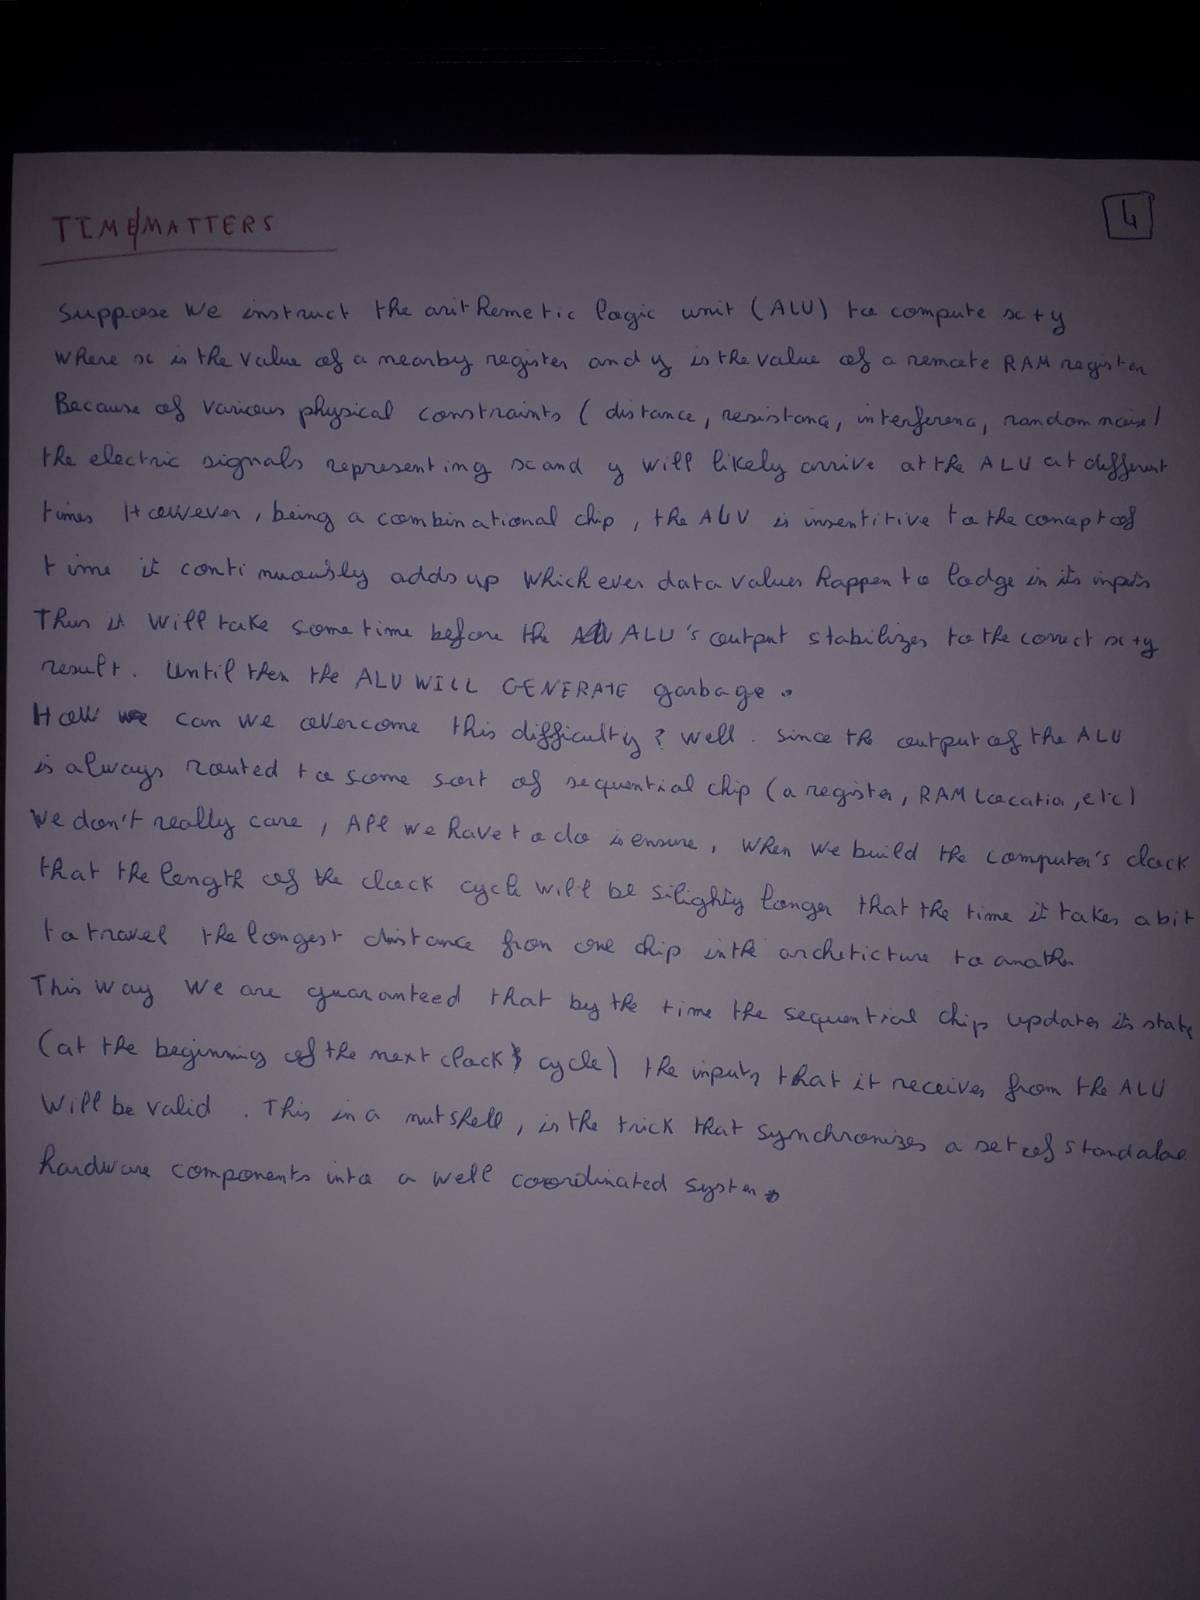 TIME/MATTERS
4
Suppose we instruct the arithemetic logic unit (ALU) to compute x+y
where x is the value of a nearby register and y is the value of a remote RAM register
Because of various physical constraints (distance, resistanc, interferenc, random noise)
the electric signals representing x and y will likely arrive at the ALU at different
times However, being a combinational chip, the ALU is insentitive to the concept of
time it continuously adds up which ever data values happen to lodge in its inputs
Thus it will take some time before the ALU's output stabilizes to the correct x+y
result. Until then the ALU WILL GENERATE garbage.
How can we overcome this difficulty? Well. since the output of the ALU
is always routed to some sort of sequential chip (a register, RAM Location, etc)
We don't really care, All we have to do is ensure, when we build the computer's clock
that the length of the clock cycle will be silighty longer that the time it takes a bit
to travel the longest distance from one chip in the archeticture to another
This way we are guaranteed that by the time the sequential chip updates its state
(at the beginning of the next clock cycle) the inputs that it receives from the ALU
will be valid. This in a nutshell, is the trick that synchronizes a set of standalone
hardware components into a well coordinated system.